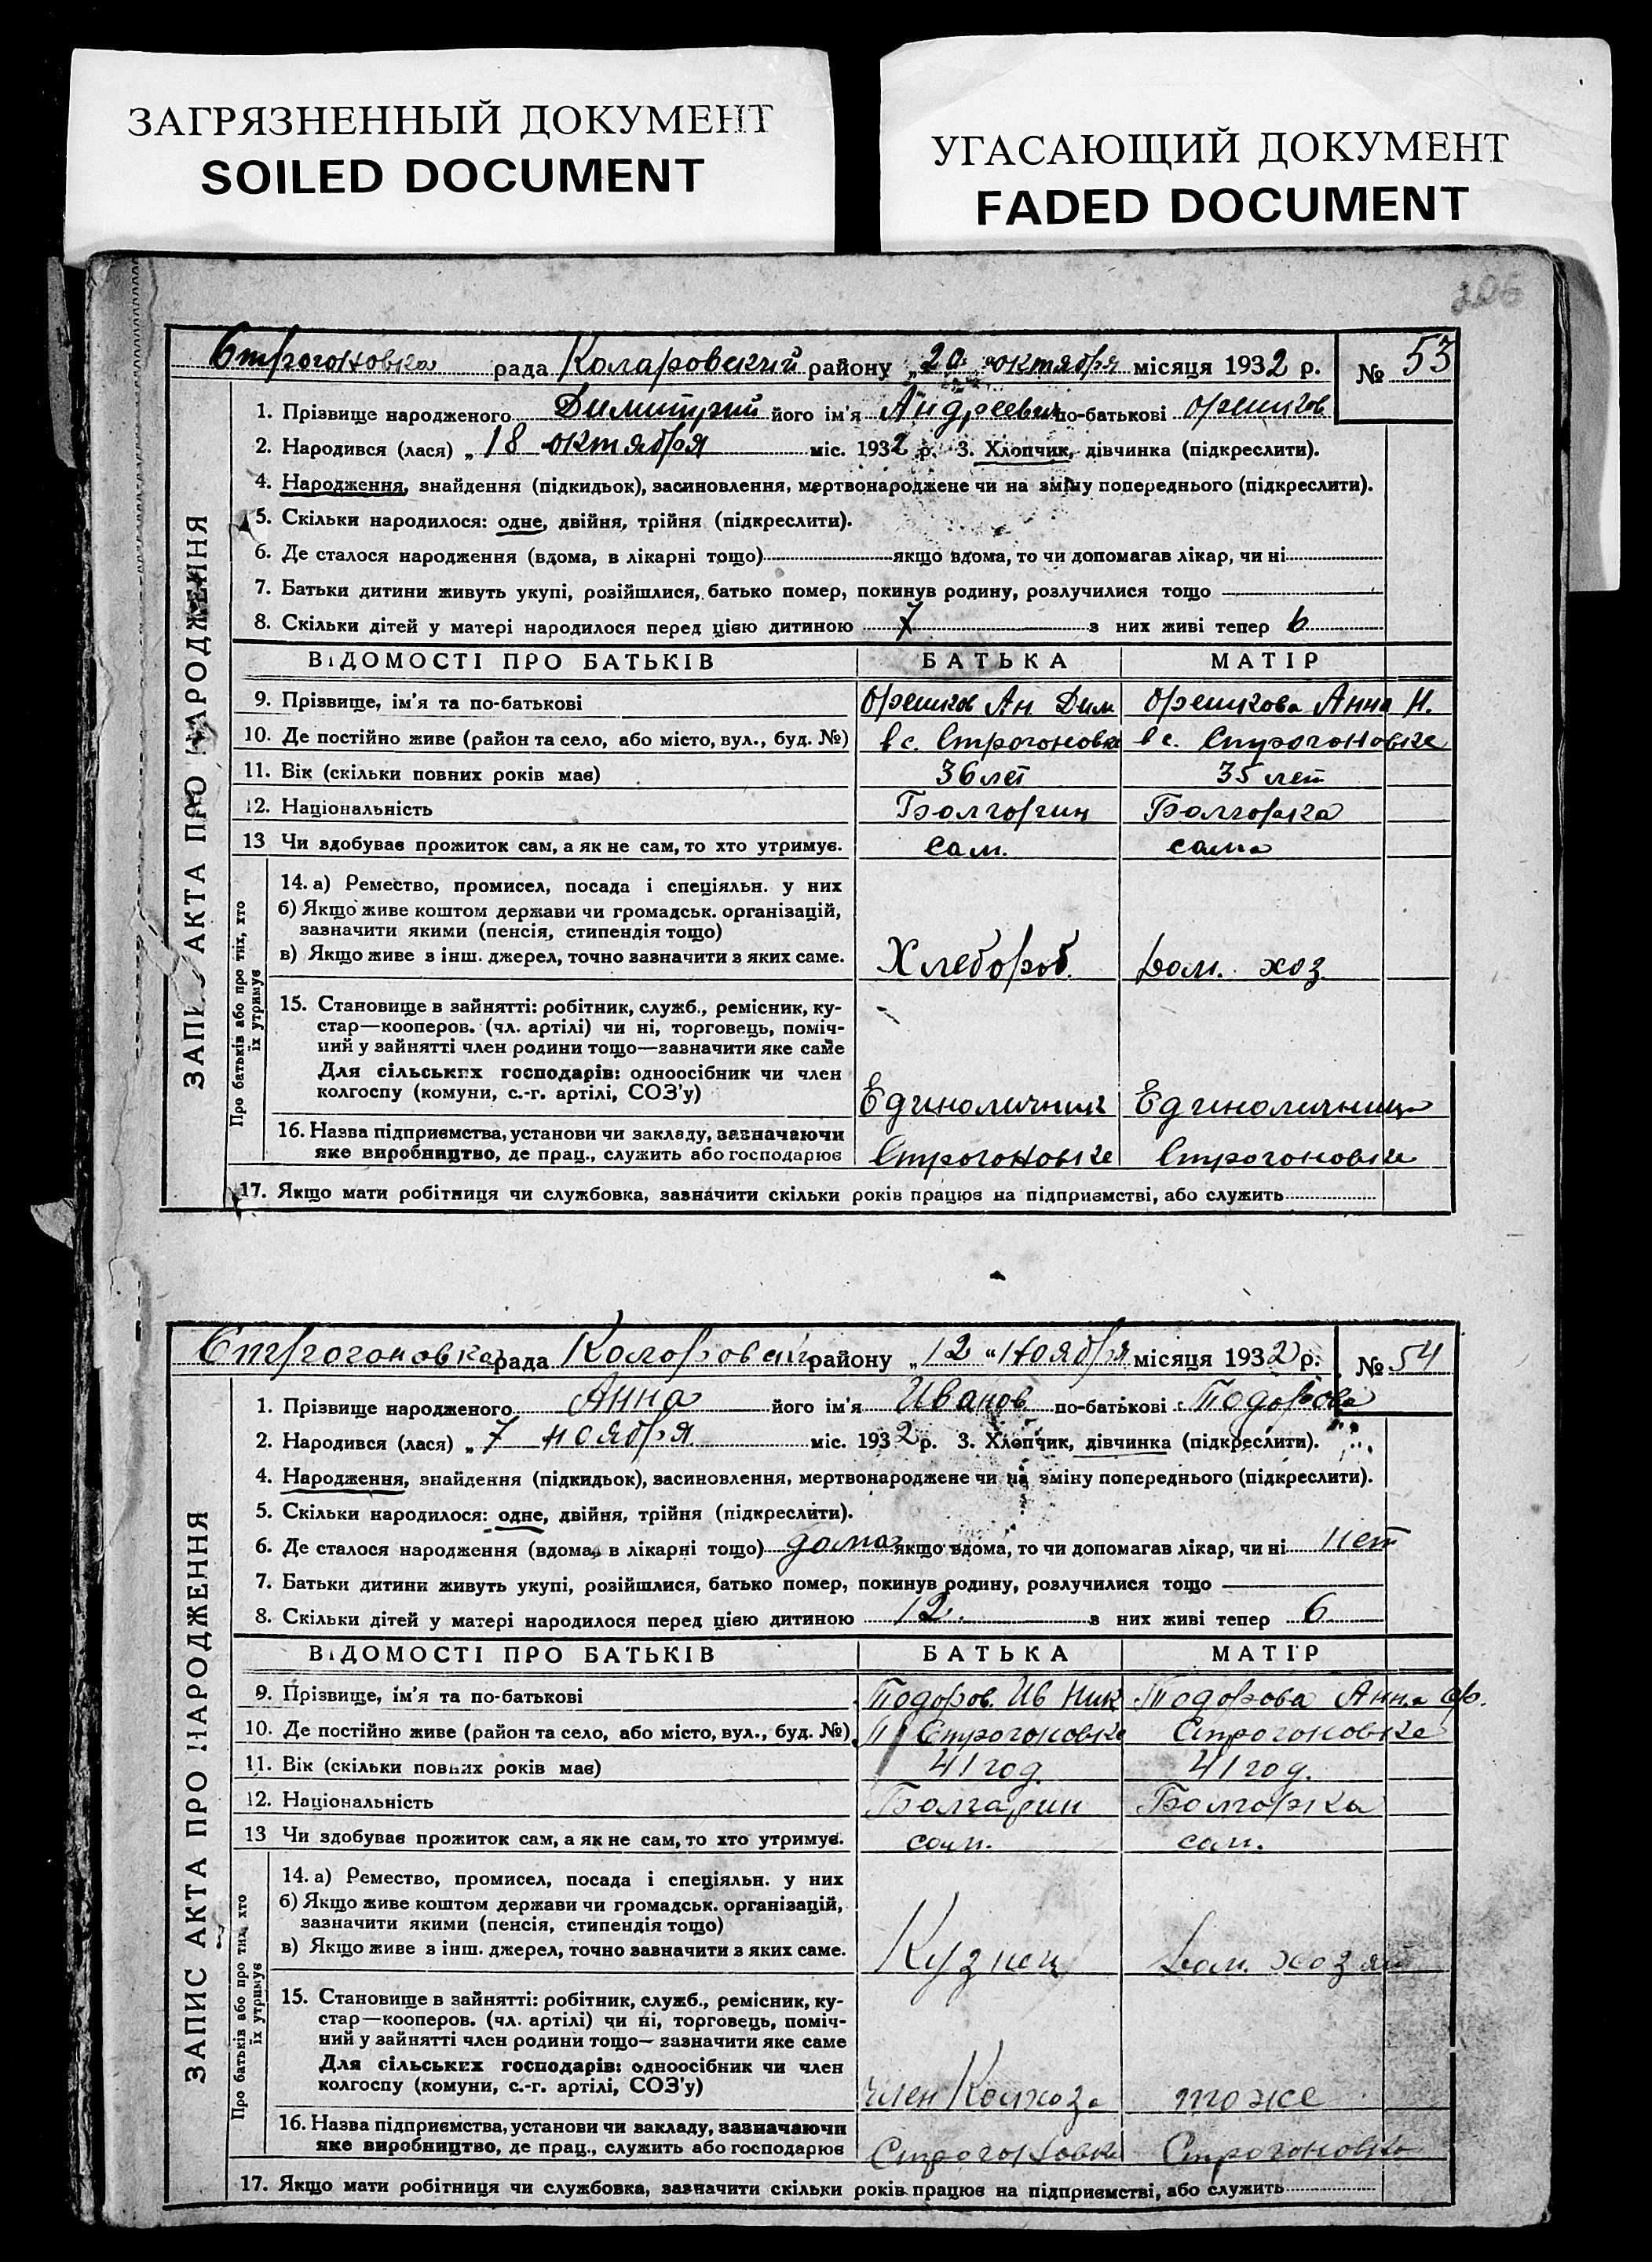 ЗАГРЯЗНЕННЫЙ ДОКУМЕНТ
SOILED DOCUMENT
УГАСАЮЩИЙ ДОКУМЕНТ
FADED DOCUMENT
206
Строгоновка рада Коларовский району „20 "октября місяця 1932 р. № 53
1. Прізвище народженого Димитрий його ім'я Андреевич по-батькові Орешков
2. Народився (лася) „18 октября міс. 1932 р. 3. Хлопчик, дівчинка (підкреслити).
4. Народження, знайдення (підкидьок), засиновлення, мертвонароджене чи на зміну попереднього (підкреслити).
5. Скільки народилося: одне, двійня, трійня (підкреслити).
6. Де сталося народження (вдома, в лікарні тощо) якщо вдома, то чи допомагав лікар, чи ні
7. Батьки дитини живуть укупі, розійшлися, батько помер, покинув родину, розлучилися тощо
8. Скільки дітей у матері народилося перед цією дитиною 7 з них живі тепер 6
ЗАПИС АКТА ПРО НАРОДЖЕННЯ
ВІДОМОСТІ ПРО БАТЬКІВ БАТЬКА МАТІР
9. Прізвище, ім'я та по-батькові Орешков Ан. Дим Орешкова Анна Н.
10. Де постійно живе (район та село, або місто, вул., буд. №) в с. Строгоновке в с. Строгоновке
11. Вік (скільки повних років має) 36 лет 35 лет
12. Національність Болгорин Болгорка
13 Чи здобуває прожиток сам, а як не сам, то хто утримує. сам. сама
Про батьків або про тих, хто
їх утримує
14. а) Ремество, промисел, посада і спеціяльн. у них
б) Якщо живе коштом держави чи громадськ. організацій,
зазначити якими (пенсія, стипендія тощо)
в) Якщо живе з інш. джерел, точно зазначити з яких саме. Хлебороб Дом. хоз
15. Становище в зайнятті: робітник, служб., ремісник, ку-
стар—кооперов. (чл. артілі) чи ні, торговець, поміч-
ний у зайнятті член родини тощо—зазначити яке саме
Для сільських господарів: одноосібник чи член
колгоспу (комуни, с.-г. артілі, СОЗ'у) Единоличник Единоличница
16. Назва підприємства, установи чи закладу, зазначаючи
яке виробництво, де прац., служить або господарює Строгоновке Строгоновке
17. Якщо мати робітниця чи службовка, зазначити скільки років працює на підприємстві, або служить
Строгоновка рада Колоровский району „12 " ноября місяця 1932 р. № 54
1. Прізвище народженого Анна його ім'я Иванов по-батькові Тодорова
2. Народився (лася) „7 ноября міс. 1932 р. 3. Хлопчик, дівчинка (підкреслити).
4. Народження, знайдення (підкидьок), засиновлення, мертвонароджене чи на зміну попереднього (підкреслити).
5. Скільки народилося: одне, двійня, трійня (підкреслити).
6. Де сталося народження (вдома, в лікарні тощо) дома якщо вдома, то чи допомагав лікар, чи ні нет
7. Батьки дитини живуть укупі, розійшлися, батько помер, покинув родину, розлучилися тощо
8. Скільки дітей у матері народилося перед цією дитиною 12 з них живі тепер 6
ЗАПИС АКТА ПРО НАРОДЖЕННЯ
ВІДОМОСТІ ПРО БАТЬКІВ БАТЬКА МАТІР
9. Прізвище, ім'я та по-батькові Тодоров. Ив Ник Тодорова Анна
10. Де постійно живе (район та село, або місто, вул., буд. №) Строгоновке Строгоновке
11. Вік (скільки повних років має) 41 год. 41 год.
12. Національність Болгарин Болгорка
13 Чи здобуває прожиток сам, а як не сам, то хто утримує. сам. сам.
Про батьків або про тих, хто
їх утримує
14. а) Ремество, промисел, посада і спеціяльн. у них
б) Якщо живе коштом держави чи громадськ. організацій,
зазначити якими (пенсія, стипендія тощо)
в) Якщо живе з інш. джерел, точно зазначити з яких саме. Кузнец Дом. хозяй
15. Становище в зайнятті: робітник, служб., ремісник, ку-
стар—кооперов. (чл. артілі) чи ні, торговець, поміч-
ний у зайнятті член родини тощо— зазначити яке саме
Для сільських господарів: одноосібник чи член
колгоспу (комуни, с.-г. артілі, СОЗ'у) член Колхоза тоже
16. Назва підприємства, установи чи закладу, зазначаючи
яке виробництво, де прац., служить або господарює Строгоновке Строгоновке
17. Якщо мати робітниця чи службовка, зазначити скільки років працює на підприємстві, або служить